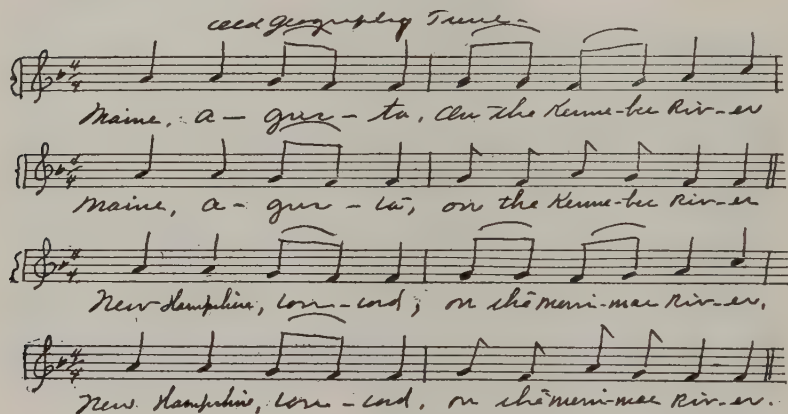 Old Geography Tune-
Maine, a-gus-ta, on the Kenne-bec Riv-er
Maine, a-gus-ta, on the Kenne-bec Riv-er
New Hampshire, con-cord, on the merri-mac Riv-er.
New Hampshire, con-cord, on the merri-mac Riv-er.